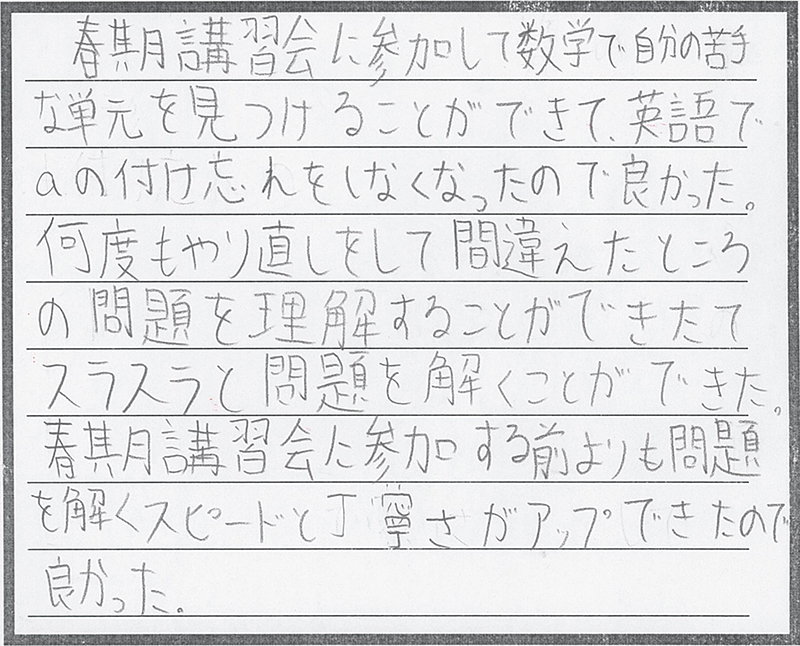 春期講習会に参加して数学で自分の苦手
な単元を見つけることができて、英語で
aの付け忘れをしなくなったので良かった。
何度もやり直しをして間違えたところ
の問題を理解することができたて
スラスラと問題を解くことができた。
春期講習会に参加する前よりも問題
を解くスピードと丁寧さがアップできたので
良かった。